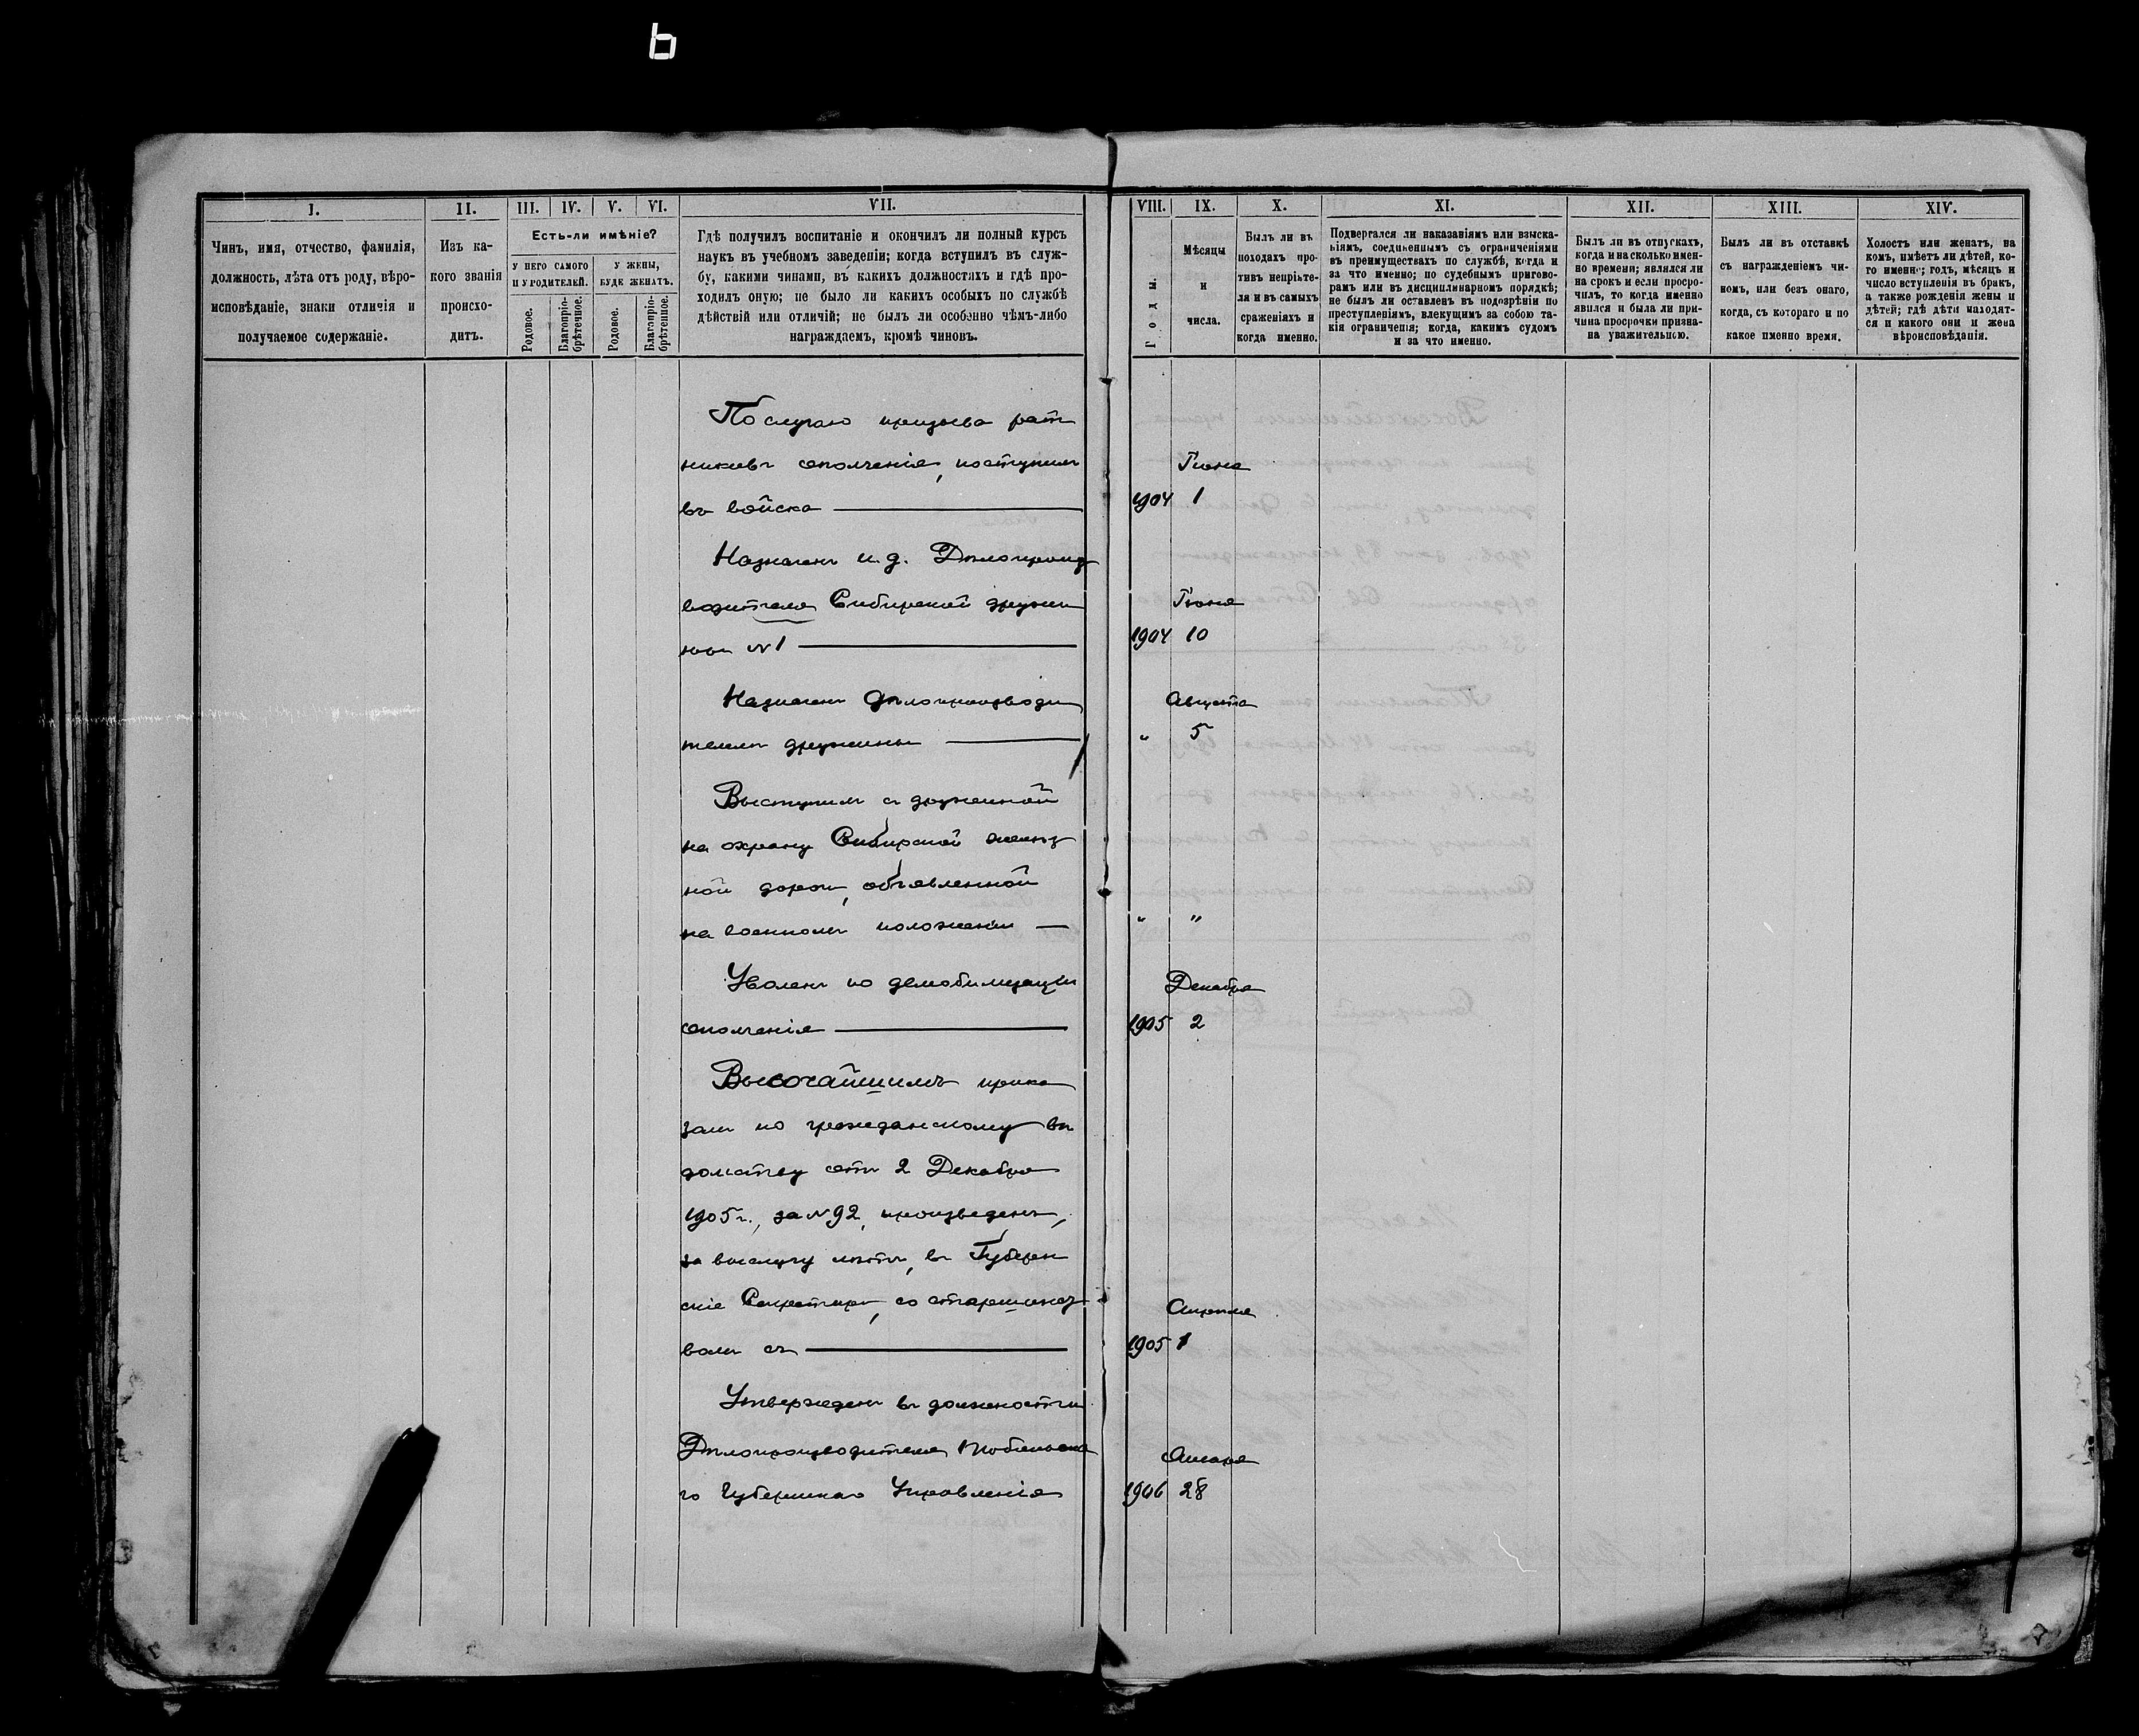 b
I.
II.
III.
IV.
V.
VI.
VII.
VIII.
IX.
X.
XI.
XII.
XIII.
XIV.
Чинъ, имя, отчество, фамилія,
должность, лѣта отъ роду, вѣро-
исповѣданіе, знаки отличія и
получаемое содержаніе.
Изъ ка-
кого званія
происхо-
дитъ.
Есть-ли имѣніе?
У НЕГО САМОГО
И У РОДИТЕЛЕЙ.
У ЖЕНЫ,
БУДЕ ЖЕНАТЪ.
Родовое.
Благопріо-
брѣтенное.
Родовое.
Благопріо-
брѣтенное.
Гдѣ получилъ воспитаніе и окончилъ ли полный курсъ
наукъ въ учебномъ заведеніи; когда вступилъ въ служ-
бу, какими чинами, въ какихъ должностяхъ и гдѣ про-
ходилъ оную; не было ли какихъ особыхъ по службѣ
дѣйствій или отличій; не былъ ли особенно чѣмъ-либо
награждаемъ, кромѣ чиновъ.
Годы.
Мѣсяцы
и
числа.
Былъ ли въ
походахъ про-
тивъ непріяте-
ля и въ самыхъ
сраженіяхъ и
когда именно.
Подвергался ли наказаніямъ или взыска-
ніямъ, соединеннымъ съ ограниченіями
въ преимуществахъ по службѣ, когда и
за что именно; по судебнымъ пригово-
рамъ или въ дисциплинарномъ порядкѣ;
не былъ ли оставленъ въ подозрѣніи по
преступленіямъ, влекущимъ за собою та-
кія ограниченія; когда, какимъ судомъ
и за что именно.
Былъ ли въ отпускахъ,
когда и на сколько имен-
но времени; являлся ли
на срокъ и если просро-
чилъ, то когда именно
явился и была ли при-
чина просрочки призна-
на уважительною.
Былъ ли въ отставкѣ
съ награжденіемъ чи-
номъ, или безъ онаго,
когда, съ котораго и по
какое именно время.
Холостъ или женатъ, на
комъ, имѣетъ ли дѣтей, ко-
го именно; годъ, мѣсяцъ и
число вступленія въ бракъ,
а также рожденія жены и
дѣтей; гдѣ дѣти находят-
ся и какого они и жена
вѣроисповѣданія.
По случаю призыва рат
никовъ ополченія, поступилъ
Іюня
въ войска
1904 1
Назначенъ и.д. Дѣлопроиз
водителя Сибирской дружи
Іюня
ны №1
1904 10
Назначенъ Дѣлопроизводи
Августа
телемъ дружины
" 5
Выступилъ съ дружиной
на охрану Сибирской желѣз
ной дороги, объявленной
на военномъ положеніи
" "
Уволенъ по демобилизаціи
Декабря
ополченія
1905 2
Высочайшимъ прика
зомъ по гражданскому вѣ
домству отъ 2 Декабря
1905 г., за №92, произведенъ,
за выслугу лѣтъ, въ Губерн
скіе Секретари, со старшинст
Апрѣля
вомъ съ
1905 1
Утвержденъ въ должности
Дѣлопроизводителя Тобольска
Января
го Губернскаго Управленія
1906 28